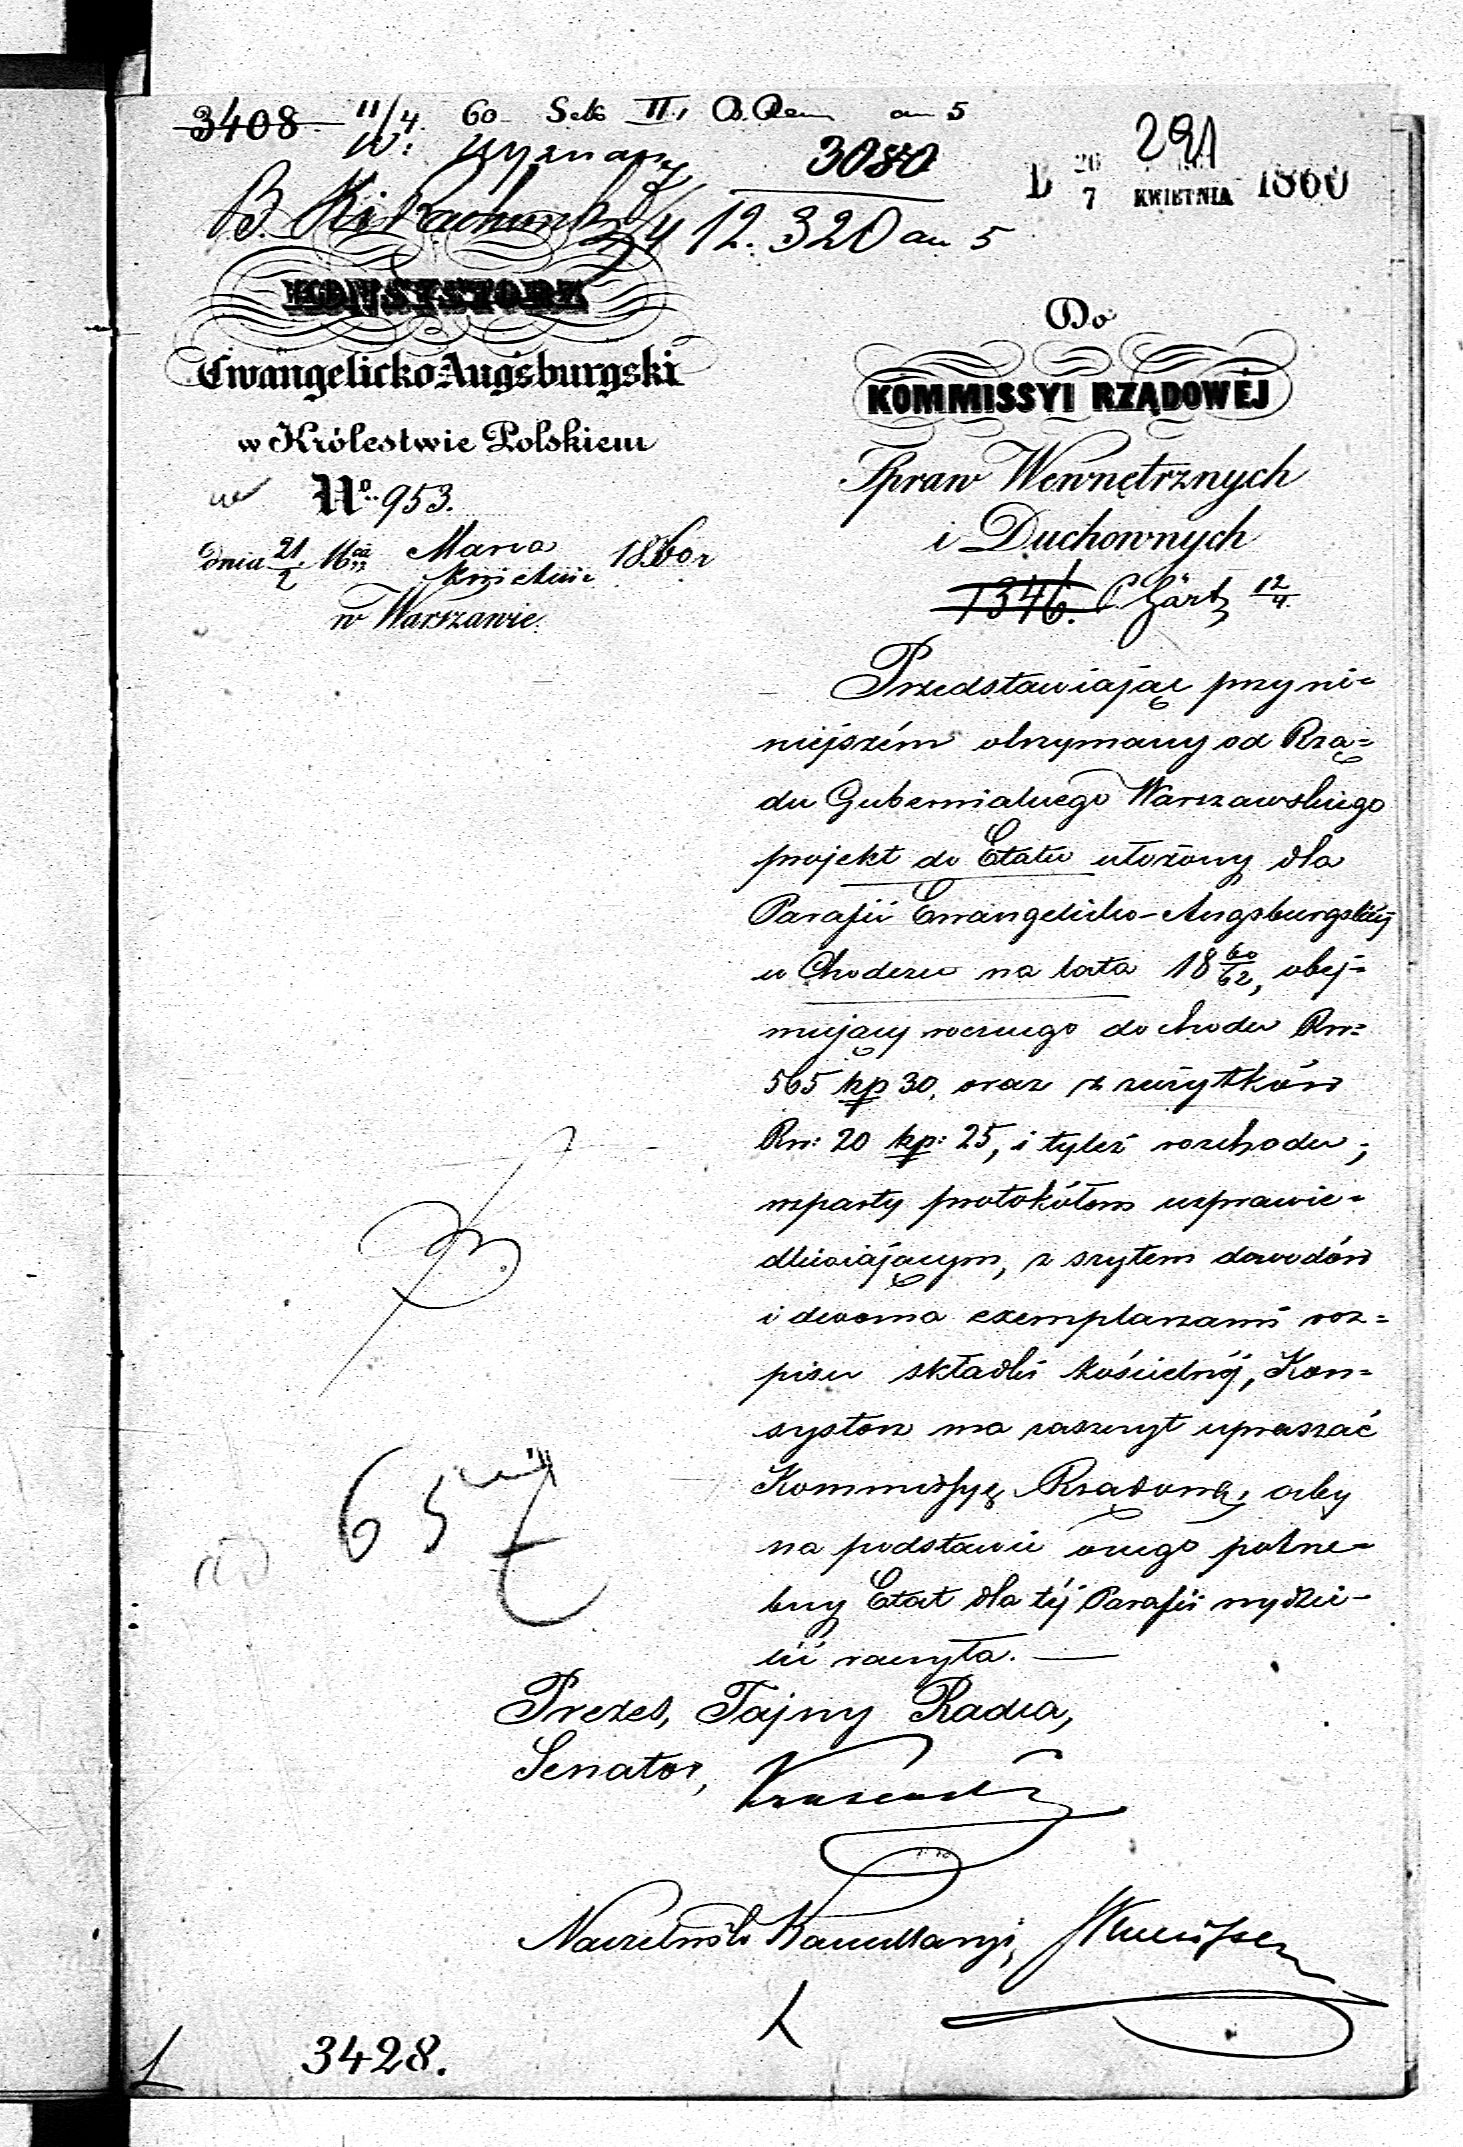 3408 11/4 60 Sek II, an 5
291
3080
D 26/7 KWIETNIA 1860
12.320 an 5
KONSYSTORZ
Ewangelicko Augsburgski
w Królestwie Polskiem
No. 953.
dnia 21/2 Marca Kwietnia 1860 r
w Warszawie.
Do
KOMMISSYI RZĄDOWEJ
Spraw Wewnętrznych
i Duchownych
1346. Gärtz 12/4
Przedstawiając przy ni=
niejszém otrzymany od Rzą=
du Gubernialnego Warszawskiego
projekt do Etatu ułożony dla
Parafii Ewangelicko-Augsburgskiej
w Chodczu na lata 18 60/62, obej=
mujący rocznego dochodu Rsr:
565 kp 30, oraz z zużytków
Rsr: 20 kp: 25, i tyleż rozchodu;
wsparty protokółem usprawie=
dliwiającym, z szytem dowodów
i dwoma exemplarzami roz=
pisu składki kościelnéj, Kon=
systorz ma zaszczyt upraszać
Kommissyę Rządową, aby
na podstawie onego potrze=
bny Etat dla téj Parafii wydzie-
lić raczyła.
Prezes, Tajny Radca,
Senator,
Naczelnik Kancellaryi,
65
3428.